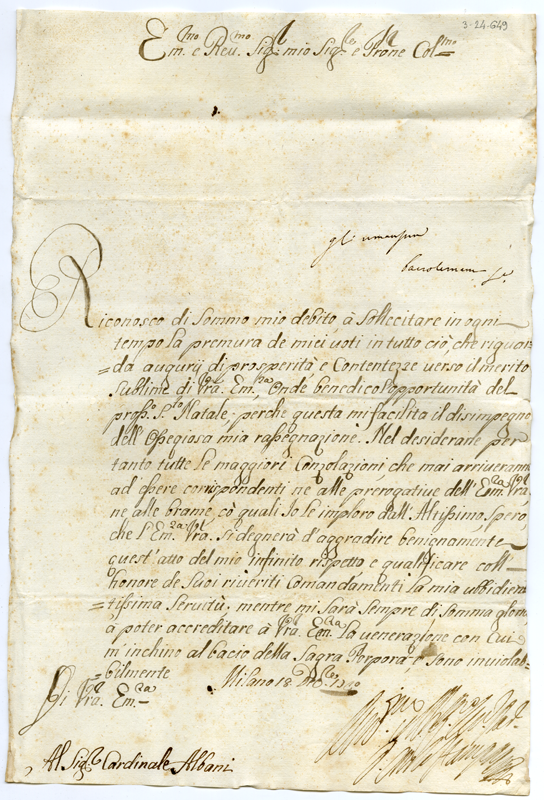 3-24-649
Em.mo e Rev.mo Sig.r mio Sig.re e Prone Col.mo
Riconosco di Sommo mio debito, à Sollecitare in ogni
tempo la premura de miei voti in tutto ciò, che riguar=
=da augurij di prosperità, e Contentezze verso il merito
Sublime di Vra. Em.za, Onde benedico l'opportunità del
pross.o S.to Natale, perche questa mi facilita il disimpegno
dell'Ossequiosa mia rassegnazione. Nel desiderare per
tanto tutte le maggiori Consolazioni, che mai arriveranno
ad essere corrispondenti ne alle prerogative dell'Em.za Vra,
ne alle brame, cò quali Io le imploro dall'Altissimo, spero,
che l'Em.za Vra. Si degnerà d'aggradire benignamente
quest'atto del mio infinito rispetto e qualificare coll'
honore de Suoi riveriti Comandamenti la mia ubbidien
=tissima Servitù, mentre mi Sarà Sempre di Somma gloria
à poter accreditare à Vra. Em.za la venerazione con Cui
m'inchino al bacio della Sagra Porpora, e Sono inviolab
=bilmente Milano 18 Xbre
Di Vra. Em.za
Al Sig.r Cardinale Albani